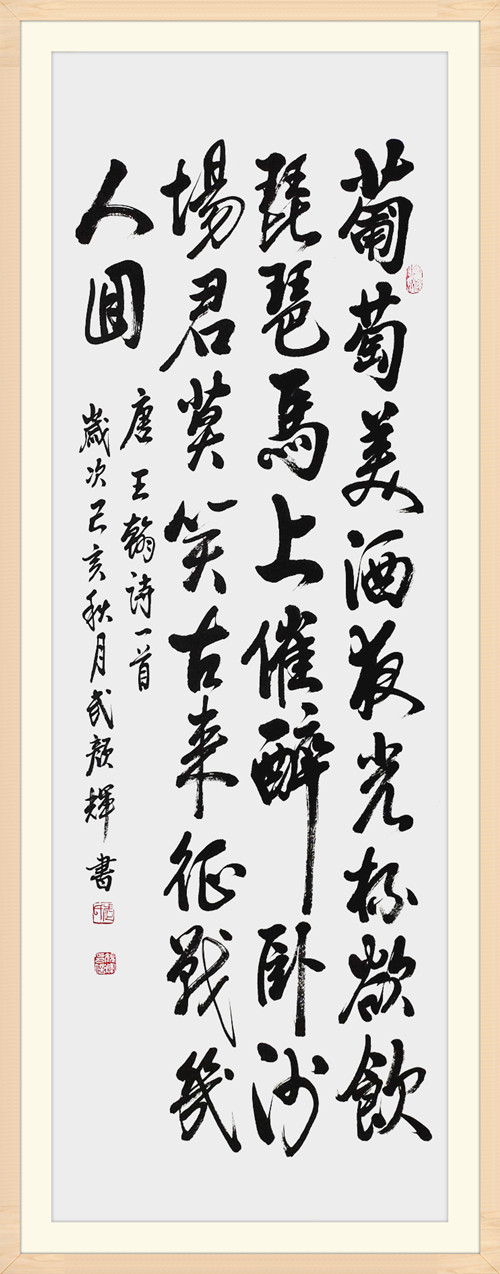 葡萄美酒夜光杯欲飲
琵琶馬上催醉卧沙
場君莫笑古來征戰幾
人回
唐王翰詩一首
歲次己亥秋月武顏輝書